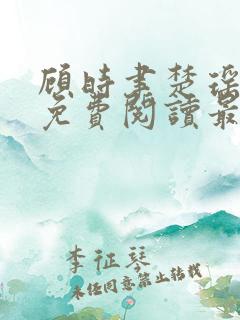 顾時書楚瑶
免費閱讀最
李征琴
未经同意禁止转载